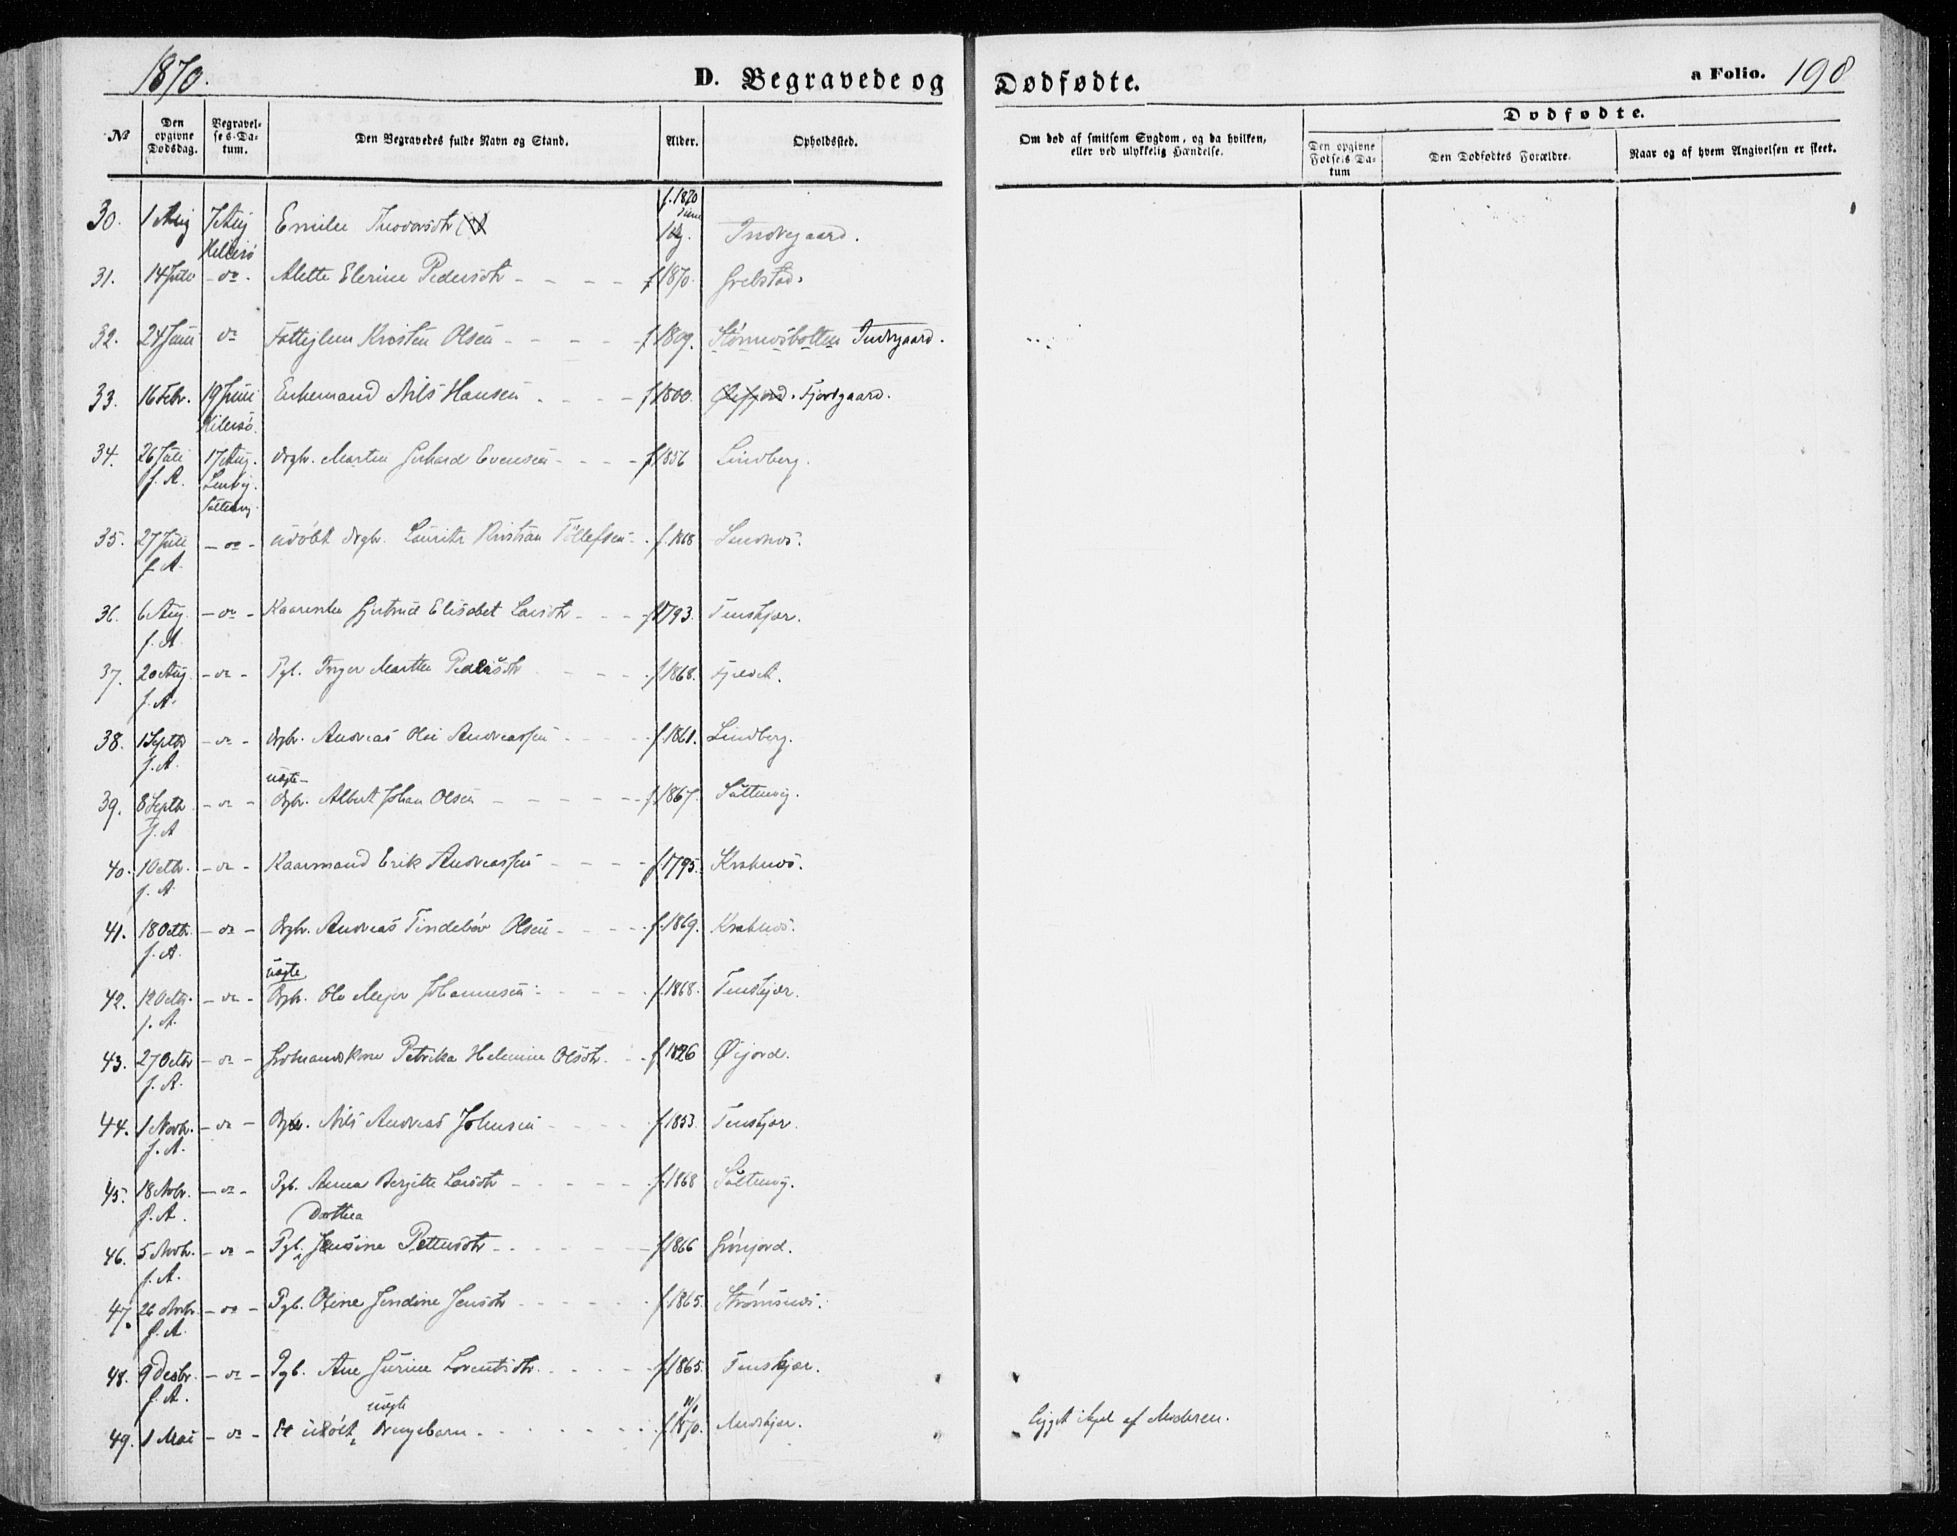 1870.
D. Begravede og Dødfødte.
a Folio. 198
No
Den opgivne Dødsdag.
Begravelses-Datum.
Den Begravedes fulde Navn og Stand.
Alder.
Opholdssted.
Om død af smitsom Sygdom, og da hvilken, eller ved ulykkelig Hændelse.
Dødfødte.
Den opgivne Fødsels Datum
Den Dødfødtes Forældre.
Naar og af hvem Angivelsen er skeet.
30. 1 Aug 7 Aug Hillesø Emilie Theodorsdtr f. 1870 Indregaard.
31. 14 Juli - do - Alette Elerine Pedersdtr - - - - f 1870. Grebstad.
32. 24 Juni do Fattiglem Kristen Olsen - - - - f 1809. Strømsbotten Indrgaard.
33. 16 Febr. 19 Juni Hillesø. Enkemand Nils Hansen - - - - f 1800. Øifjord. Fjordgaard.
34. 26 Juli f. A. 17 Aug. Drgbr. Martin Gerhard Evensen - - - - f 1856 Lindberg.
35. 27 Juli f. A. - do - udøbt Drgbr. Lauritz Kristian Tollefsen - f. 1868 Sandnes.
36. 6 Aug f. A. - do - Gjertrud Elisabet Larsdtr - - - f 1793. Finskjær.
37. 20 Aug f. A. - do - Pgb. Inger Marthe Pedersdtr - - - f 1868. Fjeldet.
38. 1 Septbr f. A. - do - Drgbr. Andreas Olai Andreassen - - - - f. 1861. Lindberg.
39. 8 Septbr f. A - do - uægte Drgbr. Albert Johan Olsen - - - - f 1867. Sultenvig.
40. 1 Octbr. f. A. - do - Kaarmand Erik Andreassen - - - - f 1795. Kraknes.
41. 18 Octbr. f. A. - do - Drgbr. Andreas Tindebør Olsen - - - - f. 1869. Kraknes.
42. 12 Octbr. f. A. - do - uægte Drgbr. Ole Mejer Johannesen - - - - f. 1868. Finskjær.
43. 27 Octbr f. A. - do - Petrika Helmine Olsdtr. - - f 1826 Øijord.
44. 1 Novbr. f. A. - do - Drgbr. Nils Andreas Johnsen - - - - f 1853. Finskjær.
45. 18 Novbr. f. A. - do - Pgb. Anna Bergitte Larsdtr - - - - f. 1868 Sultenvig.
46. 5 Novbr. f. A. - do - Pgb. Dorthea Jensine Pettersdtr - - - - f 1866 Grønjord.
47. 26 Novbr f. A. - do - Pgb. Oline Jendine Jensdtr - - - - f 1865. Strømsnes.
48. 9 Desbr. f. A. - do - Pgb. Ane Jørine Lorentsdtr. - - - - f 1865. Finskjær.
49. 1 Mai - do - Et udøbt uægte Drengebarn - - - - f 1870. Medskjær. ligget ihjel af Moderen.